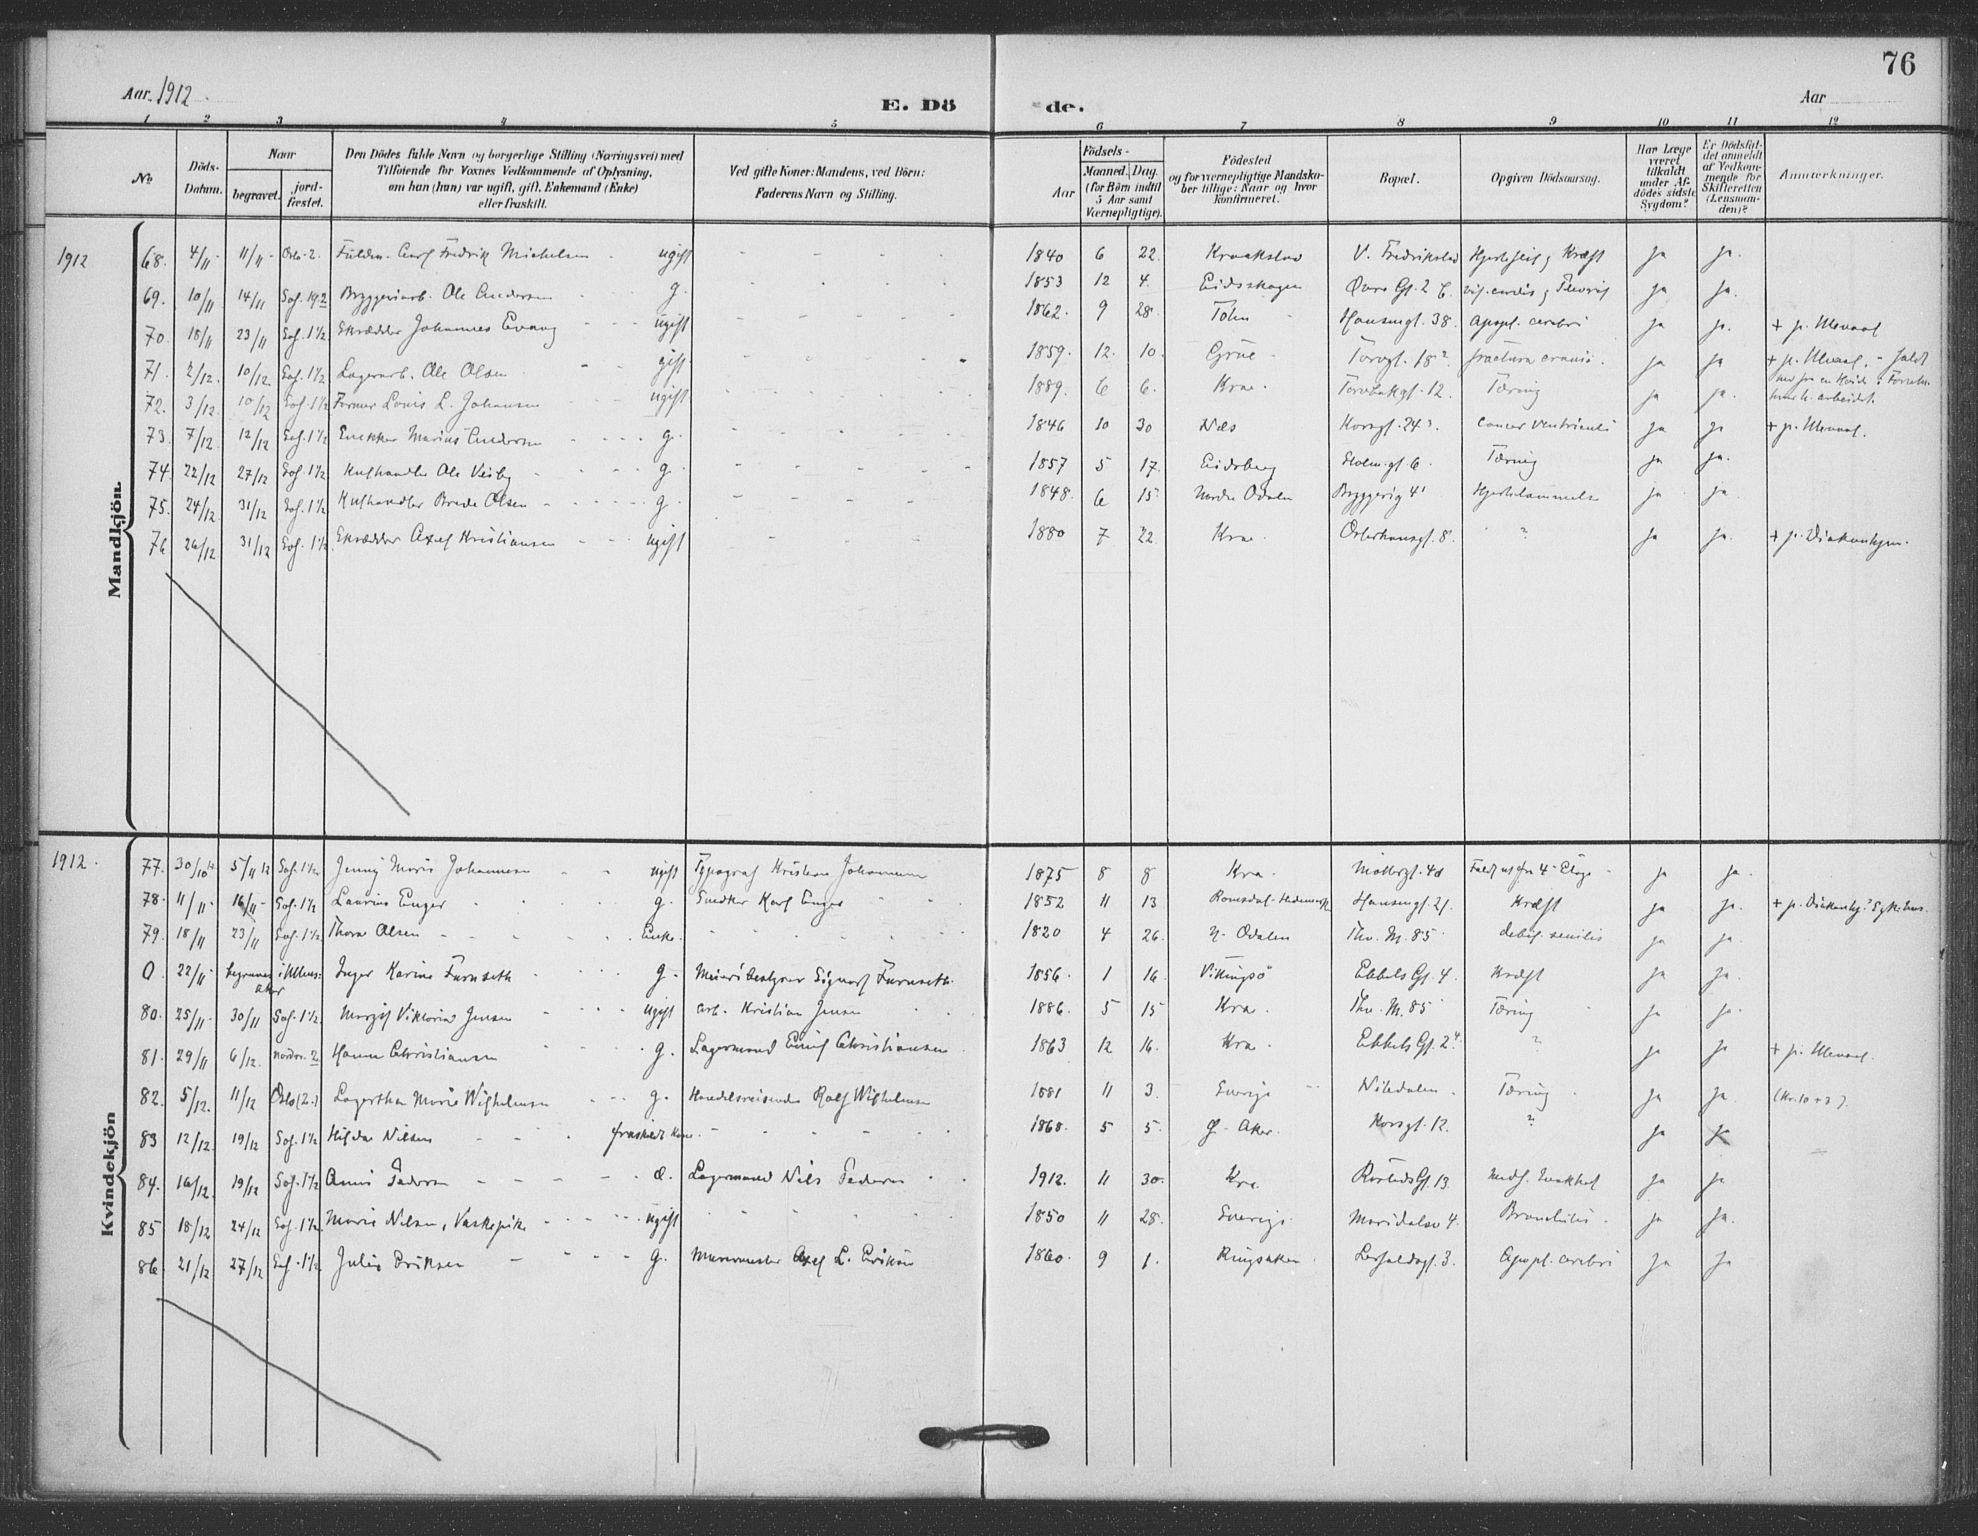 76
Aar 1912.
E. Dö de.
Aar
1 2 3 4 5 6 7 8 9 10 11 12
No.
Döds-Datum.
Naar
begravet.
jord-fæstet.
Den Dödes fulde Navn og borgerlige Stilling (Næringsvei) med Tilföiende for Voxnes Vedkommende af Oplysning, om han (hun) var ugift, gift, Enkemand (Enke) eller fraskilt.
Ved gifte Koner: Mandens, ved Börn: Faderens Navn og Stilling.
Födsels-
Aar
Maaned. Dag.
(for Börn indtil 5 Aar samt Værnepligtige).
Födested
og for værnepligtige Mandskaber tillige: Naar og hvor konfirmeret.
Bopæl.
Opgiven Dödsaarsag.
Har Læge været tilkaldt under Afdödes sidste Sygdom?
Er Dödsfaldet anmeldt af Vedkommende for Skifteretten (Lensmanden)?
Anmærkninger.
Mandkjön.
1912 68. 4/11 11/11 Oslo 2. Carl Fredrik Michelsen ugift 1840 6 22. V. Fredrikstad Kræft ja ja.
69. 10/11 14/11 Bryggeriarb. Ole Andersen g. 1853 12 4. Eidsskogen ja ja.
70. 18/11 23/11 Sof. 1½ Skrædder Johannes Evang ugift 1862. 9 28. Hansmgt. 38. apopl. cerebri ja ja. + p. Ullevaal
71. 2/12. 10/12. Sof. 1½ Lagerarb. Ole Olsen gift. 1859. 12. 10. Grue Torvgt. 18² fractura cranii. ja ja + p. Ullevaal.
72. 3/12 10/12 Sof. 1½ Former Louis L. Johansen ugift 1889. 6 6. Kra. Torvbakgt. 12. Tæring ja ja. arbeidet.
73. 7/12. 12/12 Sof. 1½ Snekker Marius Andersen g. 1846 10 30 Næs Korsgt. 24 cancer ventriculi ja ja + p. Ullevaal.
74. 22/12 27/12 Sof. 1½ Ole Veiby g. 1857 5 17. Eidsberg Holmgt. 6. Tæring ja ja.
75. 24/12 31/12 Sof. 1½ Brede Olsen g. 1848. 6 15. Nordre Odalen Bryggerig 4 Hjertelammelse ja ja.
76 26/12 31/12 Sof. 1½ Skrædder Axel Kristiansen ugift 1880 7 22. Kra. Osterhausgt. 8. " ja ja. + p. Diakonhjem.
Kvindekjön
1912. 77. 30/10 5/11 12 Sof. 1½ Jenny Marie Johannesen ugift Typograf Kristian Johannesen 1875 8 8 Kra. Møllergt. 48 Faldt ut fra 4 Etage ja ja.
78. 11/11 16/11 Sof. 1½ Laurine Enger g. Snedker Karl Enger 1852 11 13 Hansmgt. 21. Kræft ja ja.
79. 18/11 23/11 Sof. 1½ Thora Olsen Enke. 1820 4 26. N. Odalen Thv. M. 85 debil. senilis ja ja.
0. 22/11 begravet i Ullensaker Inger Karine Furuseth g. Meieribestyrer Sigvart Furuseth. 1856. 1 16. Vikingsö Ebbels Gt. 4. Kræft ja ja.
80. 25/11 30/11 Sof. 1½ Margit Viktoria Jensen ugift arb. Kristian Jensen 1886. 5 15 Kra. Thv. M. 85 Tæring ja ja.
81. 29/11 6/12. Nordre. 2 Hanna Christiansen g. Lagermand Emil Christiansen 1863 12 16. Kra. Ebbels Gt. 2. " ja ja + p. Ullevaal.
82. 5/12. 11/12 Oslo (2.) Lagertha Marie Wilhelmsen g. Handelsreisende Rolf Wilhelmsen 1881 11 3. Sverige Nikdalen. Tæring ja ja. (Kr. 10 + 3).
83 12/12. 19/12 Sof. 1½ Hilda Nilsen fraskilt Kone. 1868. 5 5. Ø. Aker. Korsgt. 12. " ja
84. 16/12. 19/12 Sof. 1½ Pedersen Lagermand Nils Pedersen 1912. 11 30. Kra. Rosteds Gt. 13. ja ja
85 18/12 24/12 Sof. 1½ Marie Nilsen, Vaskepike ugift 1850 11 28. Sverige. Maridalsv 4. Bronchitis. ja ja.
86. 21/12 27/12 Sof. 1½ Julie Eriksen g. Murermester Axel L. Eriksen 1860. 9 1. Ringsaker. 3. Apopl. cerebri ja ja